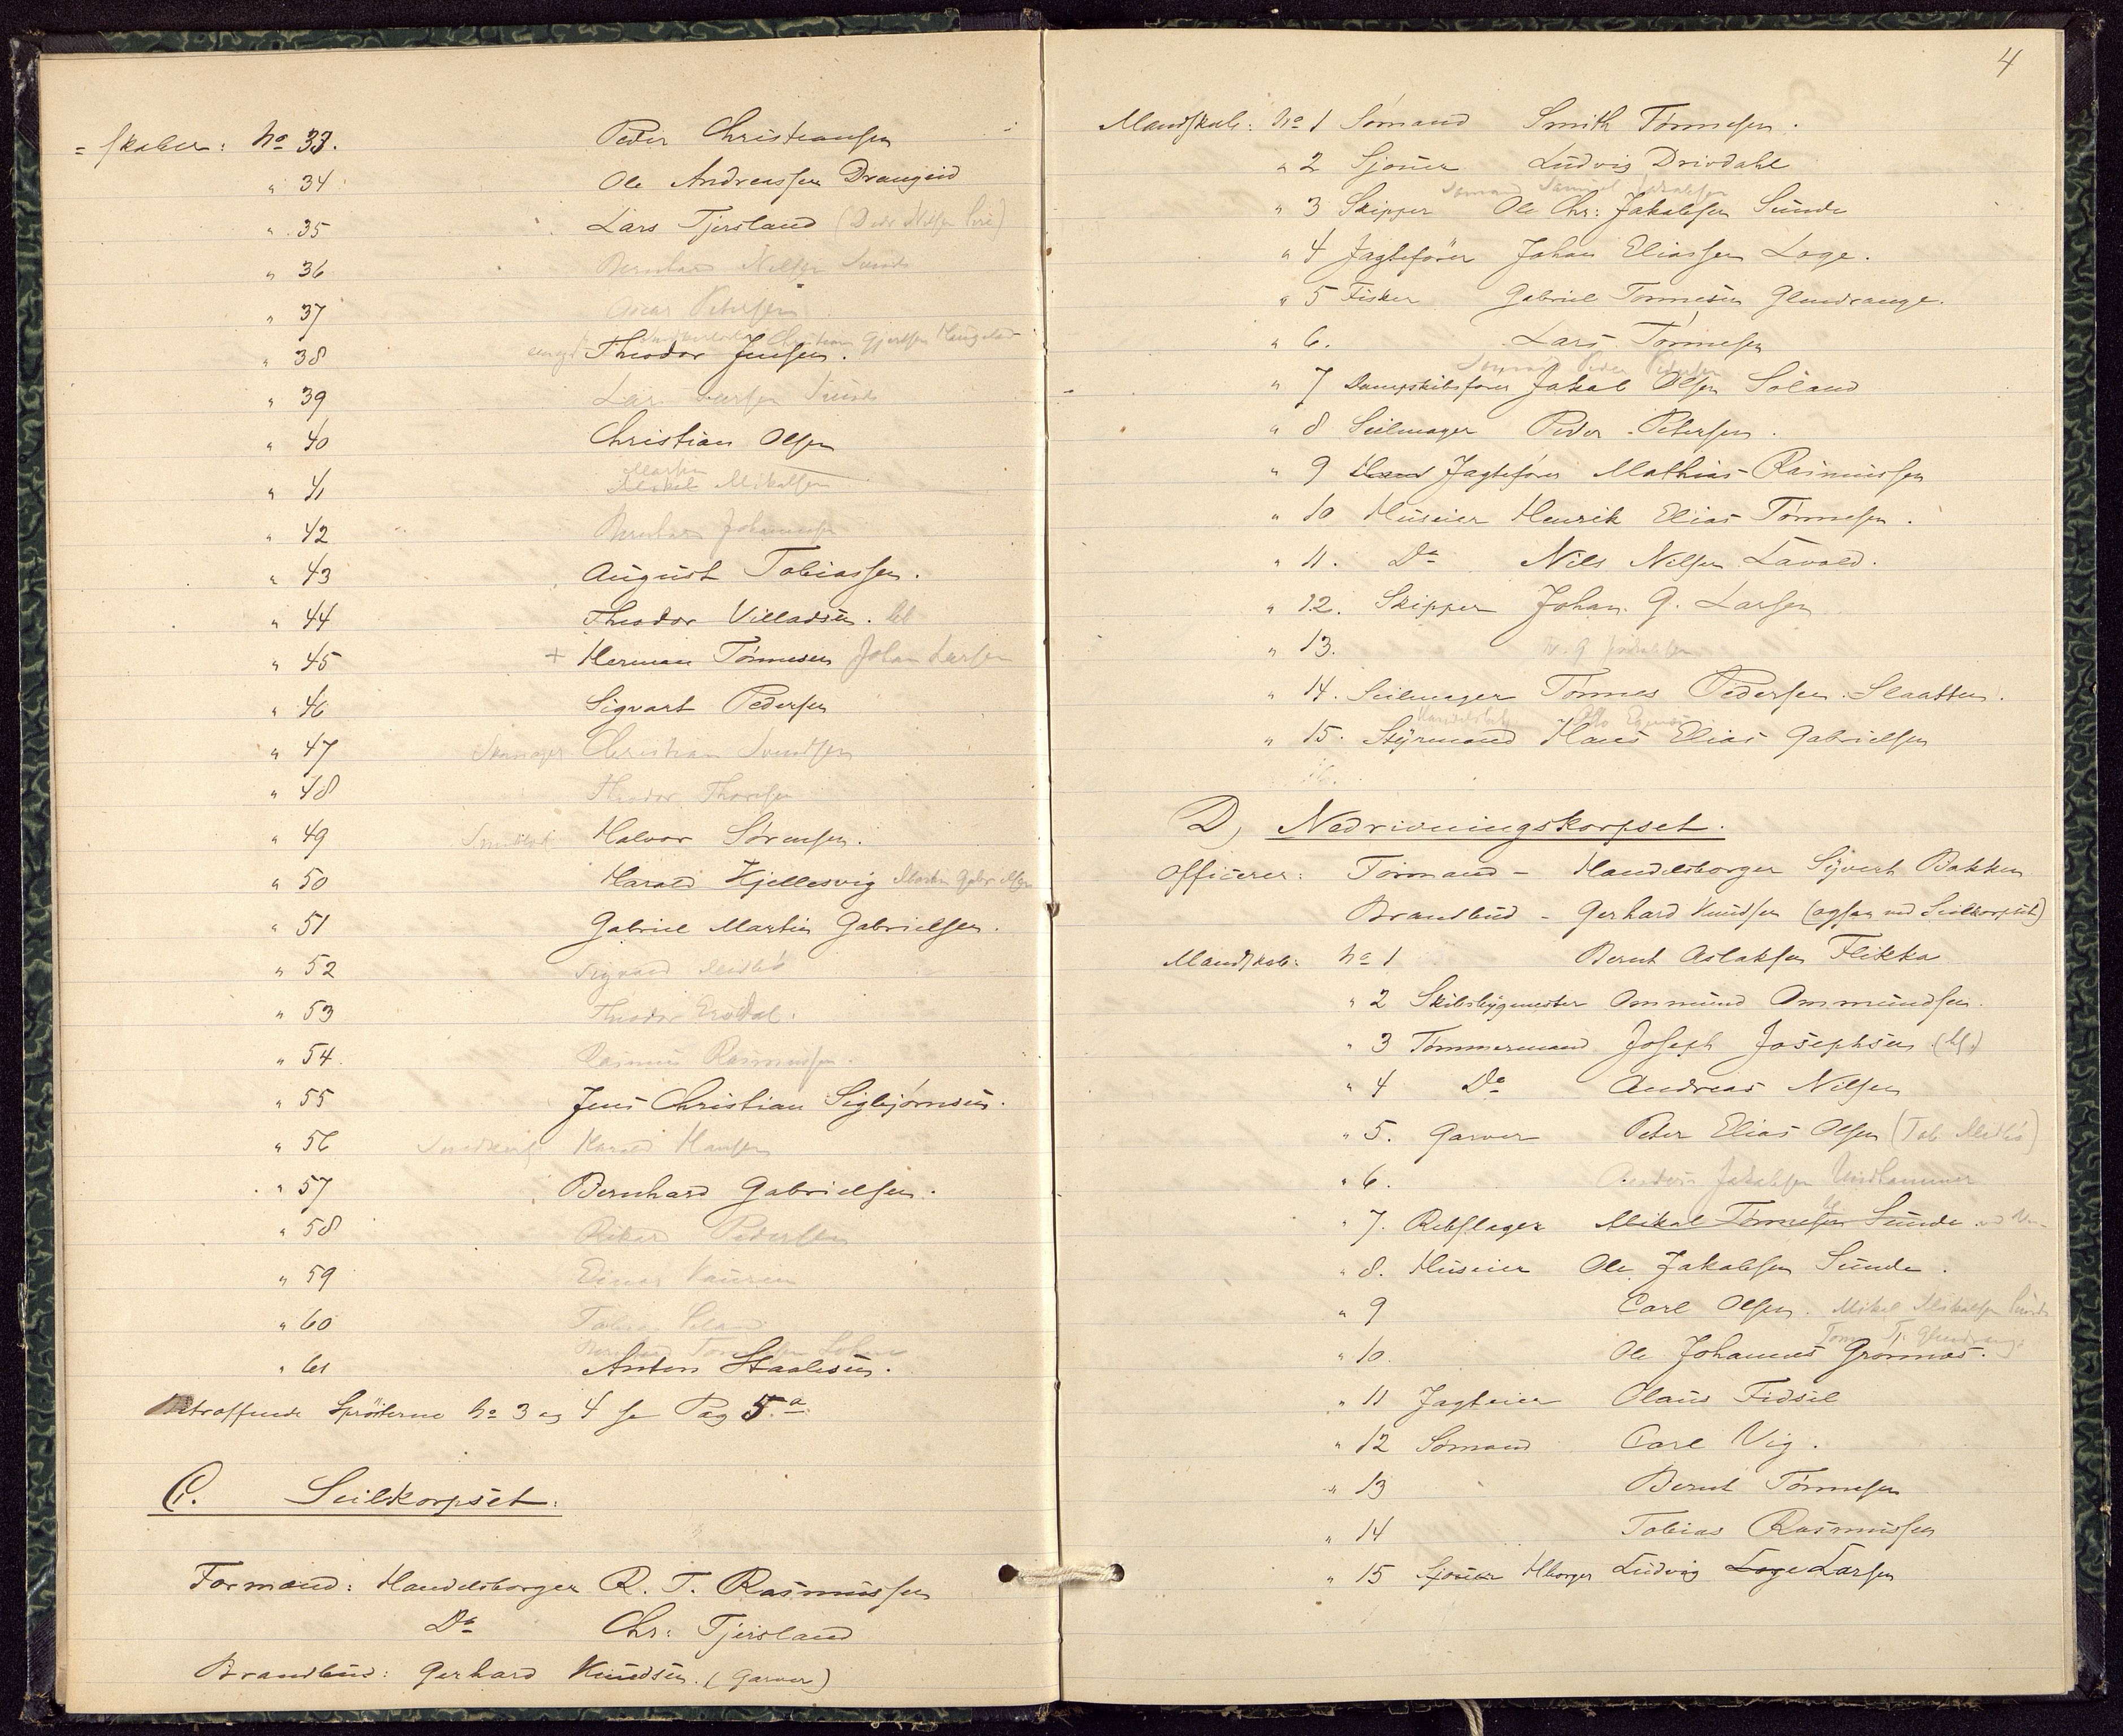 = skaber: No 33. Peder Christiansen
" 34 Ole Andreassen Drangeid
" 35 Lars Tjersland (Peder Nilsen )
" 36 Bernhard Nilsen Sunde
" 37 Oscar Petersen
Christian Gjertsen
" 38 Theodor Jensen.
" 39 Lars Larsen Sunde
" 40 Christian Olsen
Martin
" 41 Mikal Mikalsen
" 42 Bernhard Johannesen
" 43 August Tobiassen.
" 44 Theodor Villadsen.
" 45 + Herman Tønnesen Johan Larsen
" 46 Sigvart Pedersen
" 47 Christian Svendsen
" 48 Theodor Thorsen
" 49 Halvor Sørensen.
" 50 Harald Kjellesvig Martin Gabrielsen
" 51 Gabriel Martin Gabrielsen.
" 52 Sigvard Midbø
" 53 Theodor
" 54. Rasmus Rasmussen.
" 55 Jens Christian Sigbjørnsen.
" 56 Harald Hansen
" 57 Bernhard Gabrielsen.
" 58 Rikard Pedersen
" 59 Einar
" 60 Tobias
Bernhard Tønnesen
" 61 Anton Staalesen.
Betræffende Sprøiterne No 3 og 4 se Pag 5.a
C. Seilkorpset.
Formænd: Handelsborger R. T. Rasmussen
Do Chr: Tjersland
Brandbud: Gerhard Knudsen. (Garver)
4
Mandskab: No 1 Sømand Smith Tønnesen.
" 2 Sjouer Ludvig Drivdahl
Sømand Samuel Jakobsen
" 3 Skipper Ole Chr: Jakobsen Sunde
" 4 Jagtefører Johan Eliassen Loge.
" 5 Fisker Gabriel Tønnesen Glendrange.
" 6. Lars Tønnesen
Sømand Peder Pedersen
" 7 Dampskibsfører Jakob Olsen Soland
" 8 Seilmager Peder Petersen.
" 9 Jagtefører Mathias Rasmussen
" 10 Huseier Henrik Elias Tønnesen.
" 11. Do Nils Nilsen Lavold.
" 12. Skipper Johan G. Larsen
" 13.
" 14. Seilmager Tønnes Pedersen Slaatten.
" 15. Styrmand Hans Elias Gabrielsen
16.
D) Nedrivningskorpset.
Officerer: Formand - Handelsborger Syvert Bakken
Brandbud - Gerhard Knudsen (ogsaa ved Seilkorpset)
Mandskab: No 1 Bernt Aslaksen Flikka
" 2 Skibsbygmester Ommund Ommundsen.
" 3 Tømmermand Joseph Josephsen
" 4 Do Andreas Nilsen
" 5. Garver Peter Elias Olsen (Tob Midbø)
" 6. Anders Jakobsen Urdhammer
" 7. Rebslager Mikal Tønnesen Sunde
" 8. Huseier Ole Jakobsen Sunde.
" 9 Carl Olsen. Mikal Mikalsen Sunde
Tønnes Tj. Glendrange
" 10. Ole Johannes Grønnæs.
" 11 Jagteier Olaus Fidsel
" 12 Sømand Carl Vig.
" 13 Bernt Tønnesen
" 14 Tobias Rasmussen
" 15 Sjouer Hborger Ludvig Loge Larsen